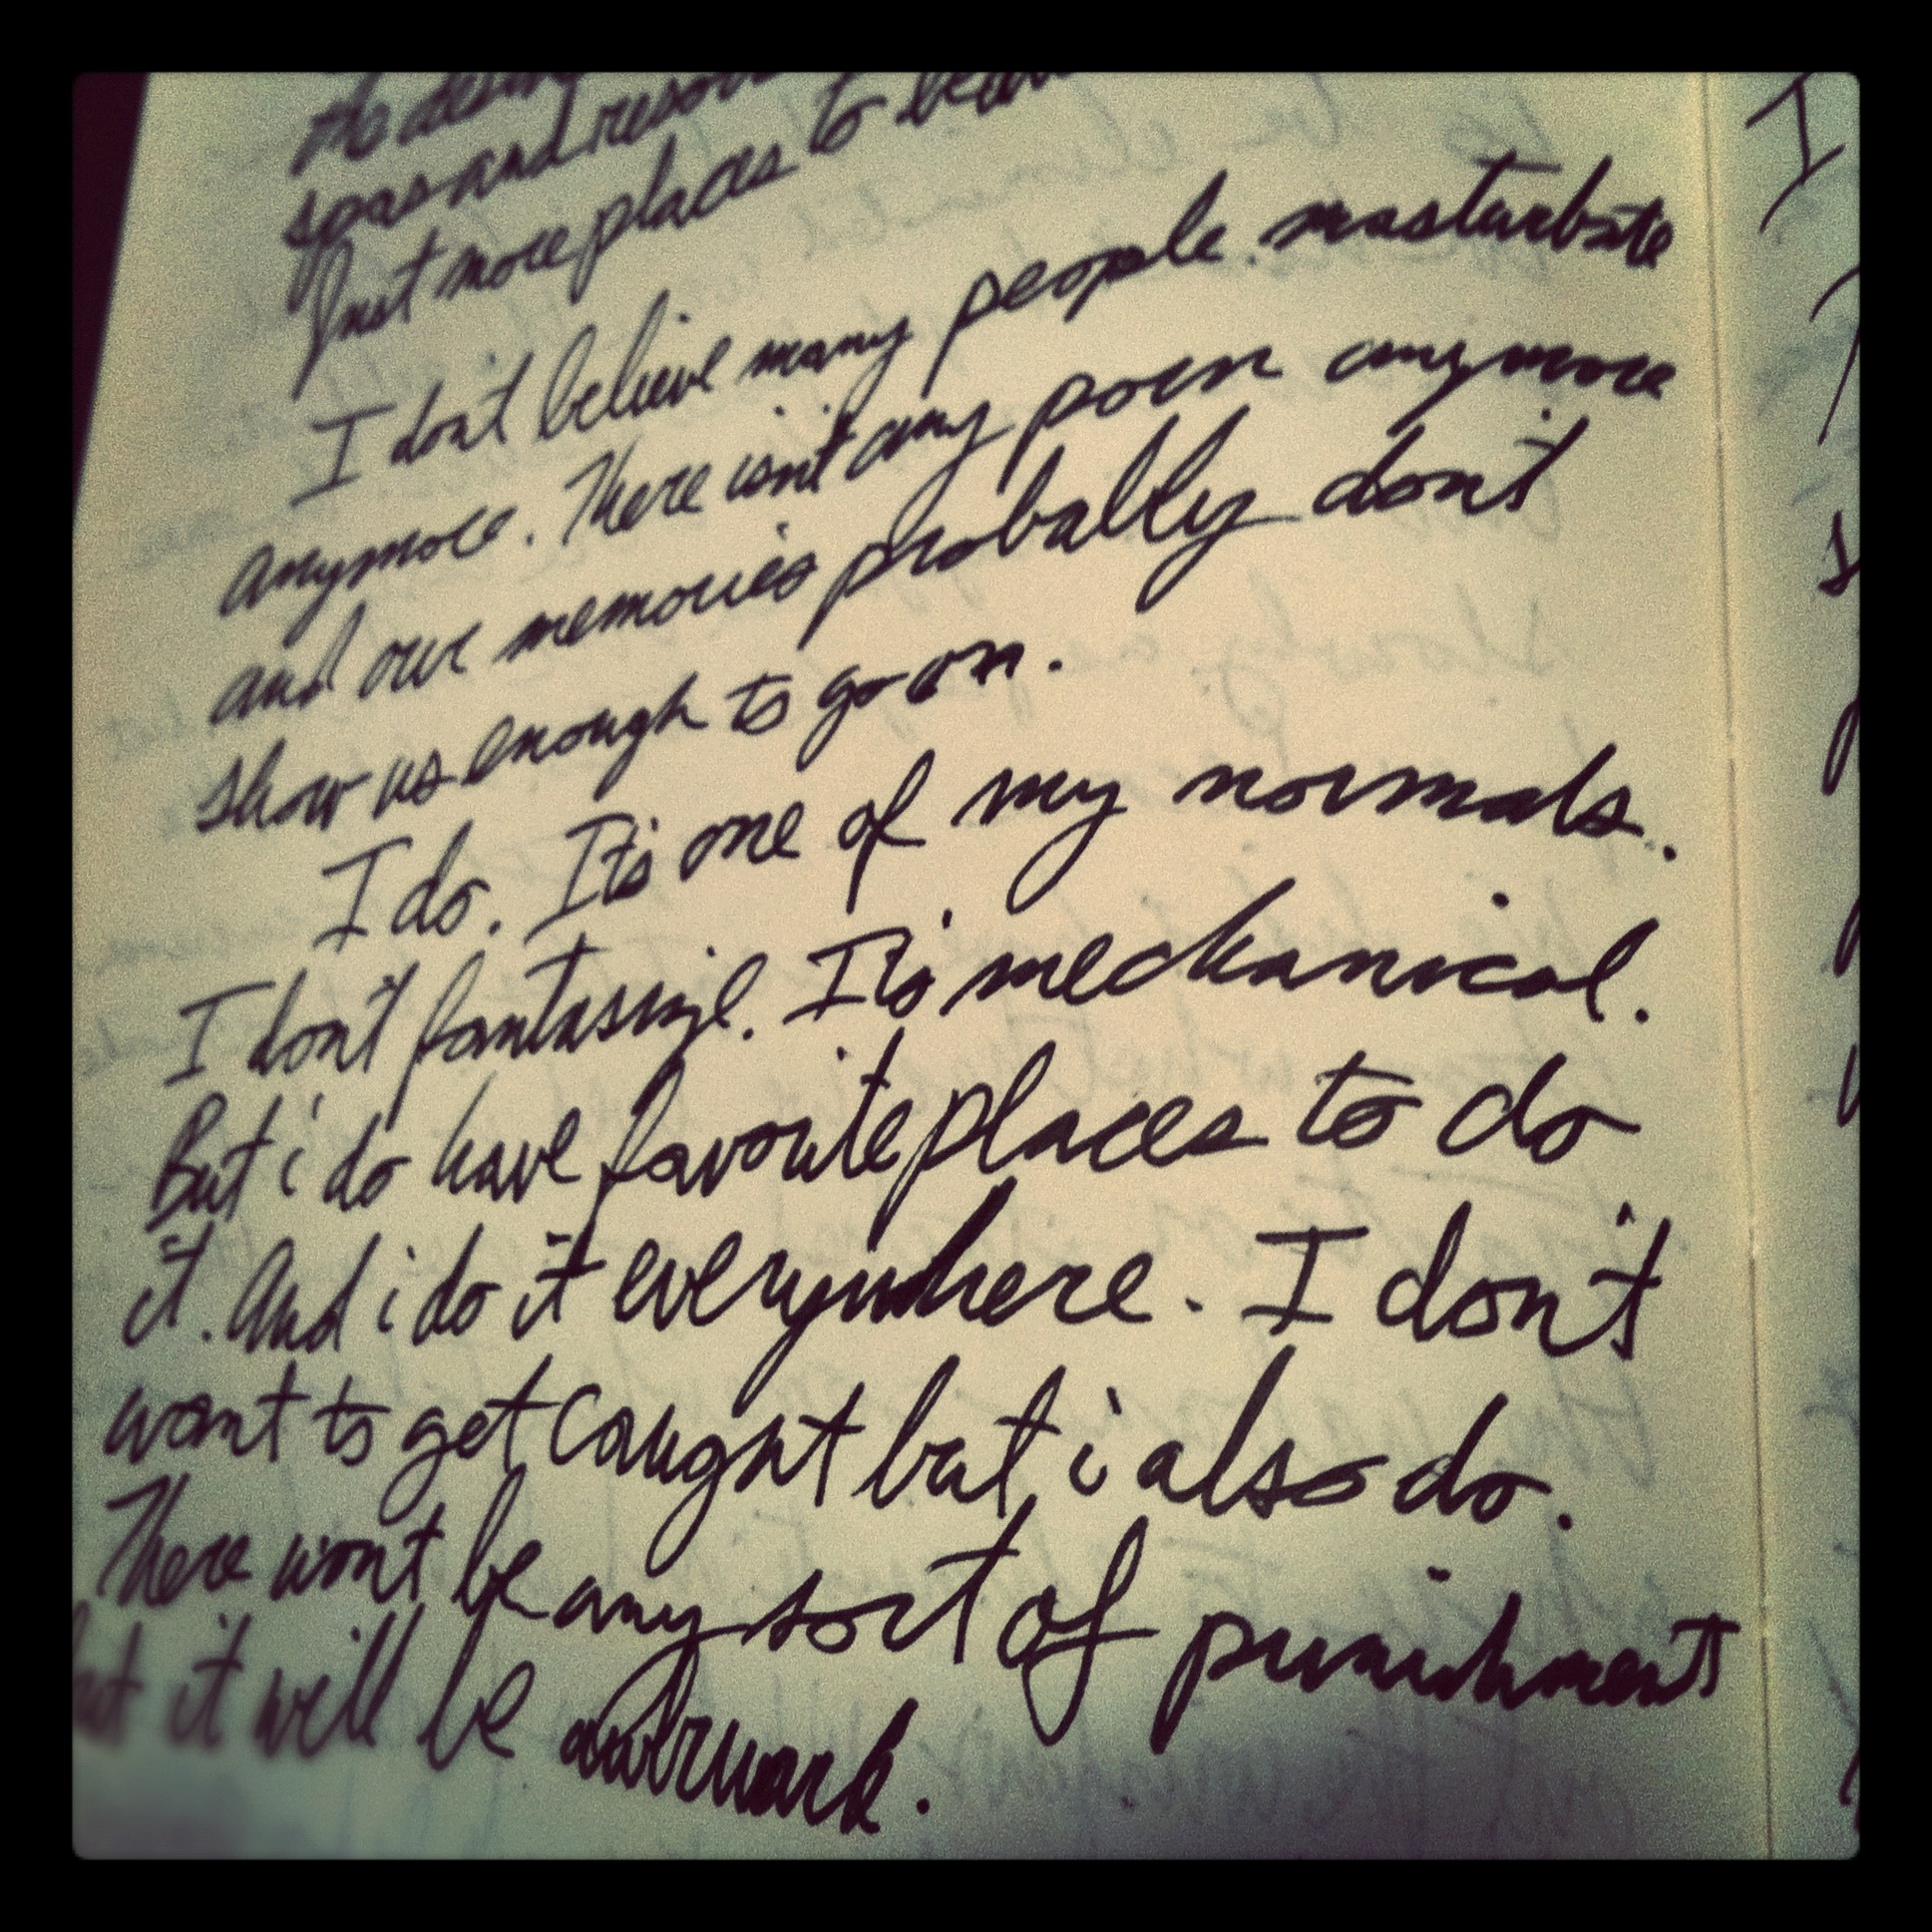 spas and
Just more places to
I don't believe many people masturbate
anymore. There isn't any porn anymore
and our memories probably don't
show us enough to go on.
I do. It's one of my normals.
I don't fantasize. It's mechanical.
But i do have favorite places to do
it. And i do it everywhere. I don't
want to get caught but i also do.
There won't be any sort of punishment
but it will be awkward.